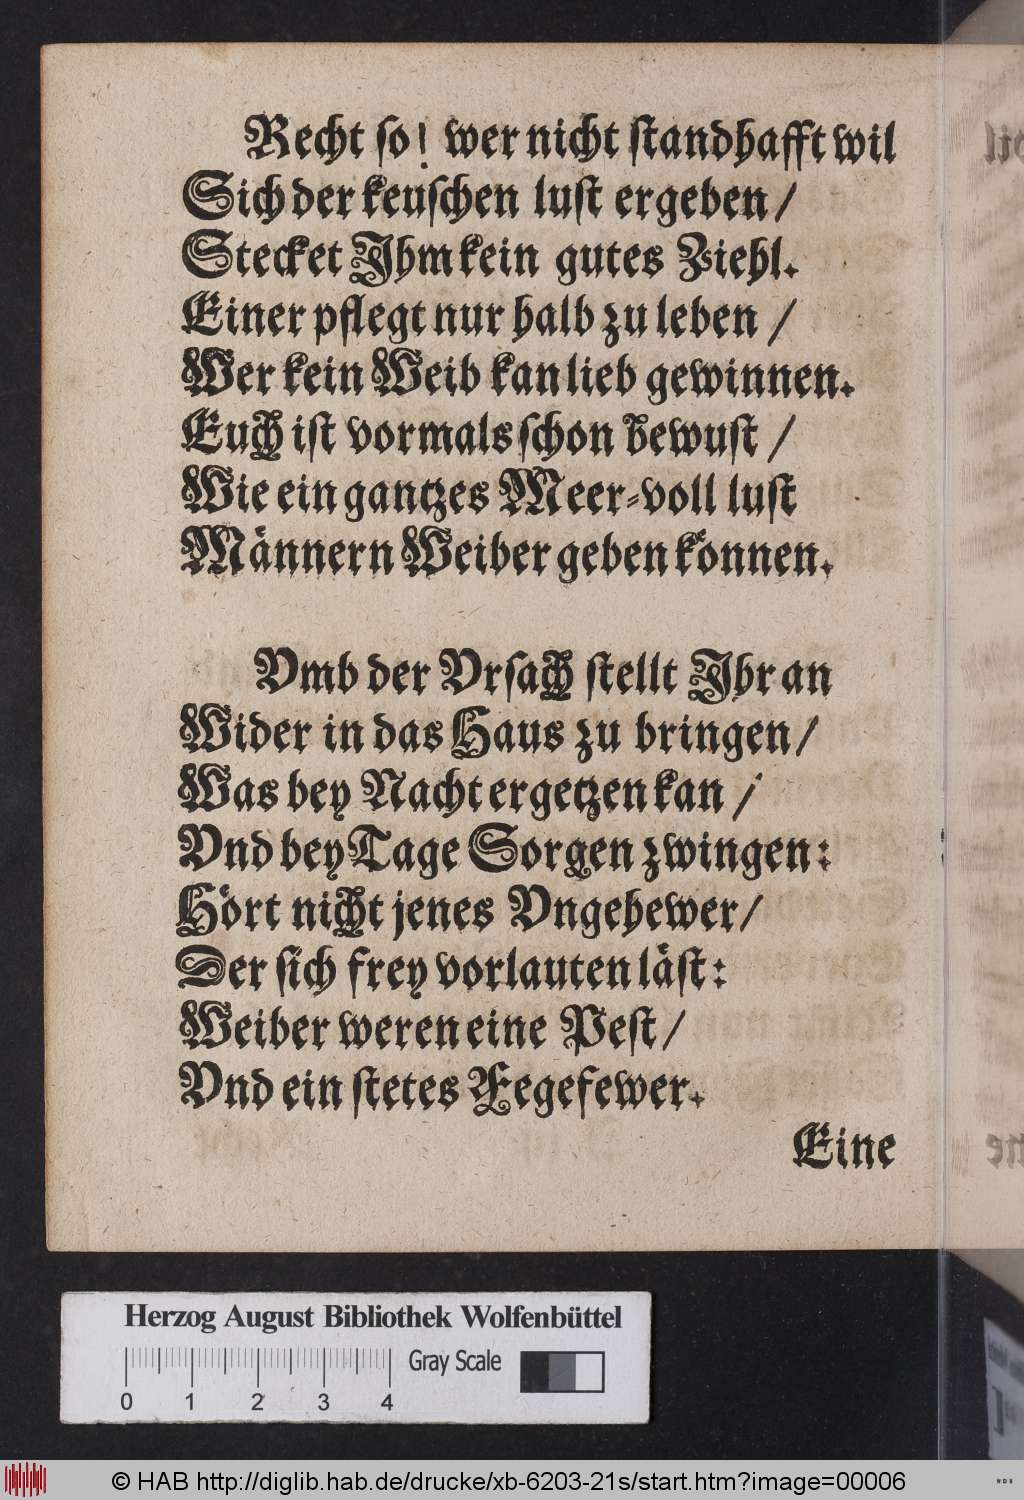 Recht so! wer nicht standhafft wil
Sich der keuschen lust ergeben /
Stecket Jhm kein gutes Ziehl.
Einer pflegt nur halb zu leben /
Wer kein Weib kan lieb gewinnen.
Euch ist vormals schon bewust /
Wie ein gantzes Meer-voll lust
Männern Weiber geben können.
Vmb der Vrsach stellt Jhr an
Wider in das Haus zu bringen /
Was bey Nacht ergetzen kan /
Vnd bey Tage Sorgen zwingen:
Hört nicht jenes Vngehewer /
Der sich frey vorlauten läst:
Weiber weren eine Pest /
Vnd ein stetes Fegefewer.
Eine
Herzog August Bibliothek Wolfenbüttel
Gray Scale
0 1 2 3 4
© HAB http://diglib.hab.de/drucke/xb-6203-21s/start.htm?image=00006